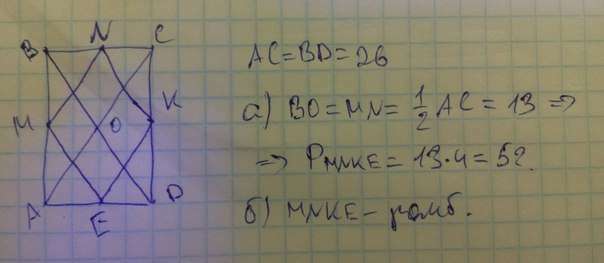 B N C
M O K
A E D
AC=BD=26
а) BO=MN=1/2 AC=13 =>
=> PMNKE=13·4=52.
б) MNKE-ромб.